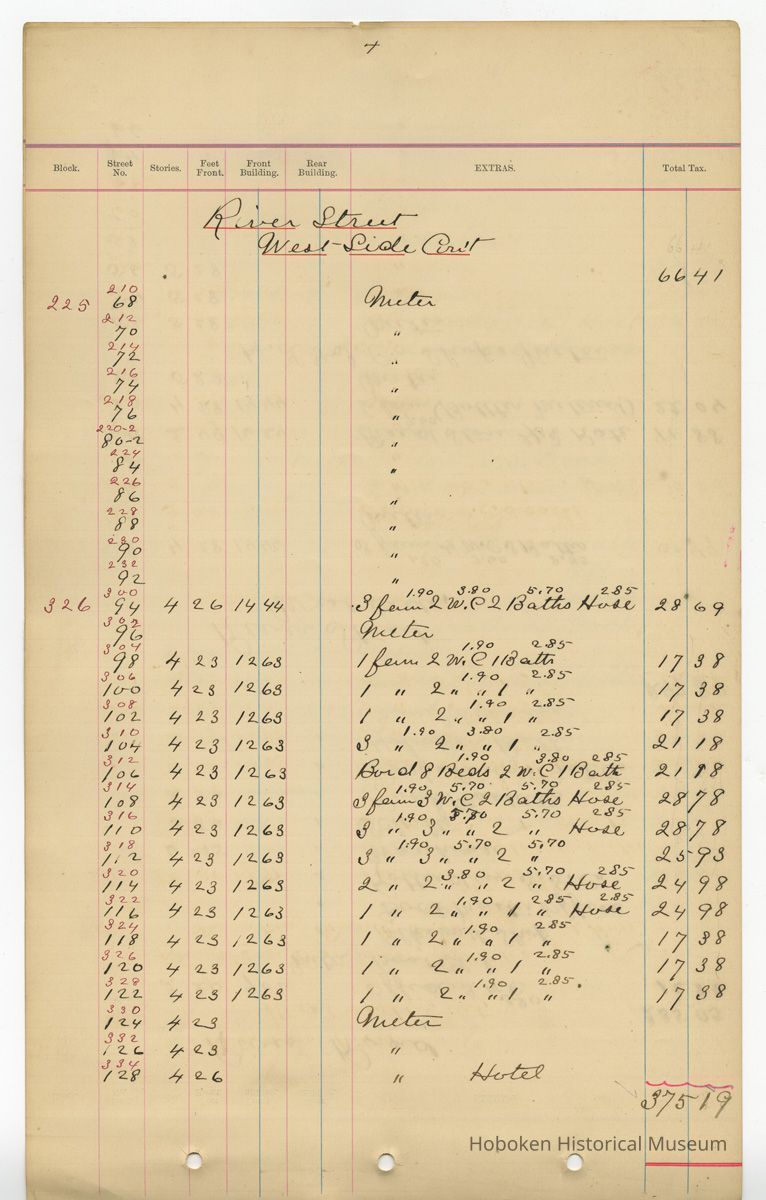 4
Block. Street No. Stories. Feet Front. Front Building. Rear Building. EXTRAS. Total Tax.
River Street
West Side Con't
66 41
210
225 68 Meter
212
70 "
214
72 "
216
74 "
218
76 "
220-2
80-2 "
224
84 "
226
86 "
228
88 "
230
90 "
232
92 "
300 1.90 3.80 5.70 2.85
326 94 4 26 14 44 3 fam 2 W.C 2 Baths Hose 28 69
302
96 Meter
304 1.90 2.85
98 4 23 12 63 1 fam 2 W.C 1 Bath 17 38
306 1.90 2.85
100 4 23 12 63 1 " 2 " " 1 " 17 38
308 1.90 2.85
102 4 23 12 63 1 " 2 " " 1 " 17 38
310 1.90 3.80 2.85
104 4 23 12 63 3 " 2 " " 1 " 21 18
312 1.90 3.80 2.85
106 4 23 12 63 Bord 8 Beds 2 W.C 1 Bath 21 18
314 1.90 5.70 5.70 2.85
108 4 23 12 63 3 fam 3 W.C 2 Baths Hose 28 78
316 1.90 5.70 2.85
110 4 23 12 63 3 " 3 " " 2 " Hose 28 78
318 1.90 5.70 5.70
112 4 23 12 63 3 " 3 " " 2 " 25 93
320 3.80 5.70 2.85
114 4 23 12 63 2 " 2 " " 2 " Hose 24 98
322 1.90 2.85 2.85
116 4 23 12 63 1 " 2 " " 1 " Hose 24 98
324 1.90 2.85
118 4 23 12 63 1 " 2 " " 1 " 17 38
326 1.90 2.85
120 4 23 12 63 1 " 2 " " 1 " 17 38
328 1.90 2.85
122 4 23 12 63 1 " 2 " " 1 " 17 38
330
124 4 23 Meter
332
126 4 23 "
334
128 4 26 " Hotel
375 19
Hoboken Historical Museum